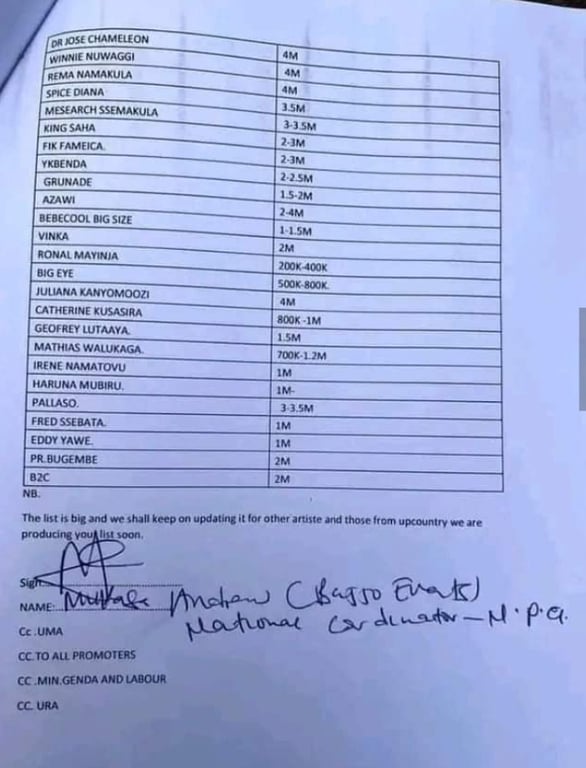 DR JOSE CHAMELEON 4M
WINNIE NUWAGGI 4M
REMA NAMAKULA 4M
SPICE DIANA 3.5M
MESEARCH SSEMAKULA 3-3.5M
KING SAHA 2-3M
FIK FAMEICA. 2-3M
YKBENDA 2-2.5M
GRUNADE 1.5-2M
AZAWI 2-4M
BEBECOOL BIG SIZE 1-1.5M
VINKA 2M
RONAL MAYINJA 200K-400K
BIG EYE 500K-800K.
JULIANA KANYOMOOZI 4M
CATHERINE KUSASIRA 800K-1M
GEOFREY LUTAAYA. 1.5M
MATHIAS WALUKAGA. 700K-1.2M
IRENE NAMATOVU 1M
HARUNA MUBIRU. 1M-
PALLASO. 3-3.5M
FRED SSEBATA. 1M
EDDY YAWE. 1M
PR.BUGEMBE 2M
B2C 2M
NB.
The list is big and we shall keep on updating it for other artiste and those from upcountry we are
producing your list soon.
Sign
NAME: Andrew (Bajjo Events)
National Cordinator - N.P.A.
Cc .UMA
CC.TO ALL PROMOTERS
CC .MIN.GENDA AND LABOUR
CC. URA